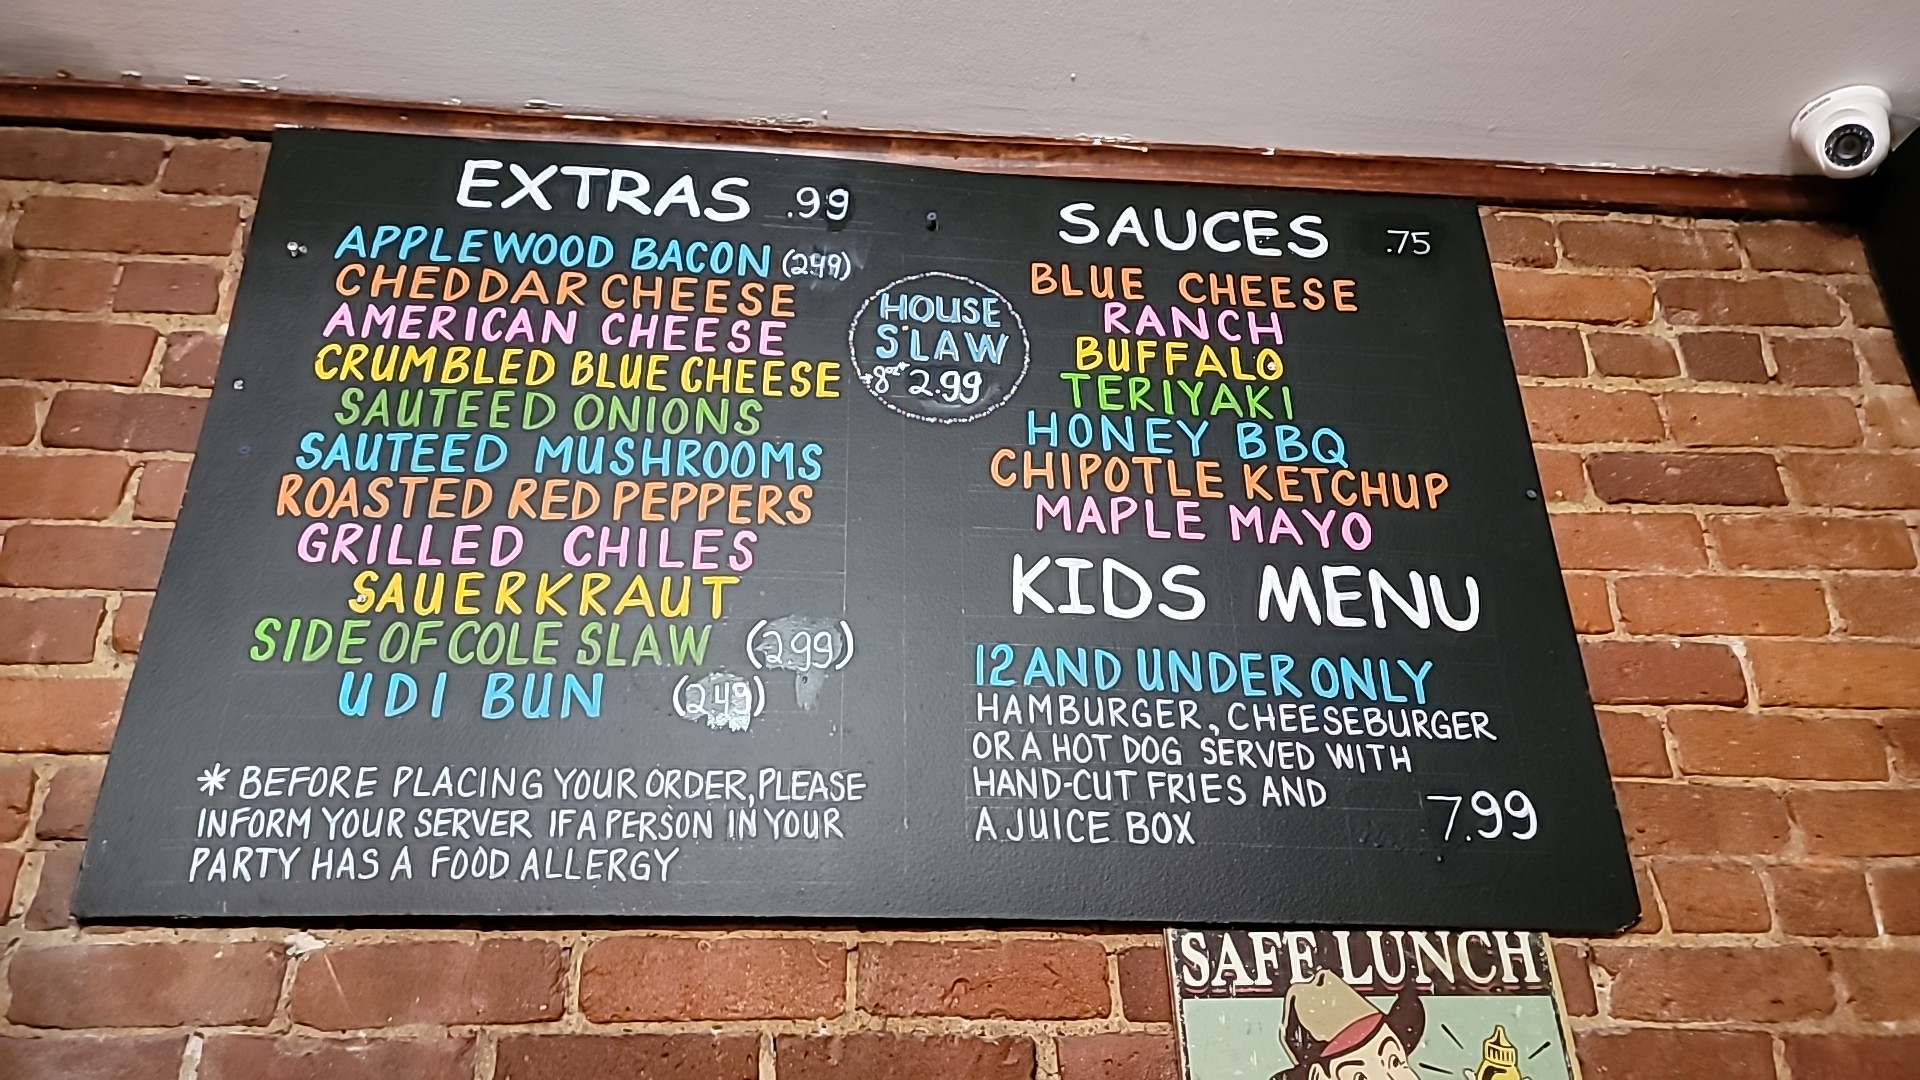 EXTRAS .99
APPLEWOOD BACON (2.49)
CHEDDAR CHEESE
AMERICAN CHEESE
CRUMBLED BLUE CHEESE
SAUTEED ONIONS
SAUTEED MUSHROOMS
ROASTED RED PEPPERS
GRILLED CHILES
SAUERKRAUT
SIDE OF COLE SLAW (2.99)
UDI BUN (2.49)
* BEFORE PLACING YOUR ORDER, PLEASE
INFORM YOUR SERVER IF A PERSON IN YOUR
PARTY HAS A FOOD ALLERGY
HOUSE
SLAW
*8oz* 2.99
SAUCES .75
BLUE CHEESE
RANCH
BUFFALO
TERIYAKI
HONEY BBQ
CHIPOTLE KETCHUP
MAPLE MAYO
KIDS MENU
12 AND UNDER ONLY
HAMBURGER, CHEESEBURGER
OR A HOT DOG SERVED WITH
HAND-CUT FRIES AND
A JUICE BOX 7.99
SAFE LUNCH